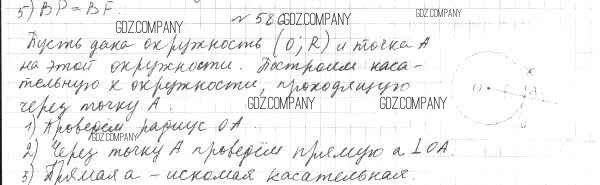 5) BP = BF.
№ 586
Пусть дана окружность (O; R) и точка A
на этой окружности. Построим каса-
тельную к окружности, проходящую
через точку A.
1) Проведём радиус OA.
2) Через точку A проведём прямую a ⊥ OA.
3) Прямая a – искомая касательная.
GDZ.COMPANY
GDZ.COMPANY
GDZ.COMPANY
GDZ.COMPANY
GDZ.COMPANY
GDZ.COMPANY
O
A